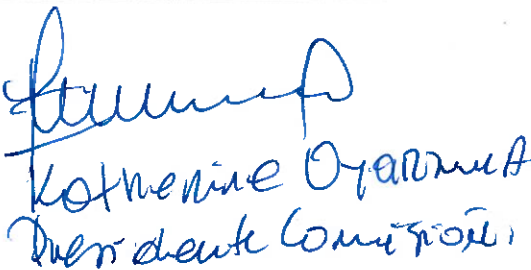 Katherine Oyarzun A
Presidente Comisión.